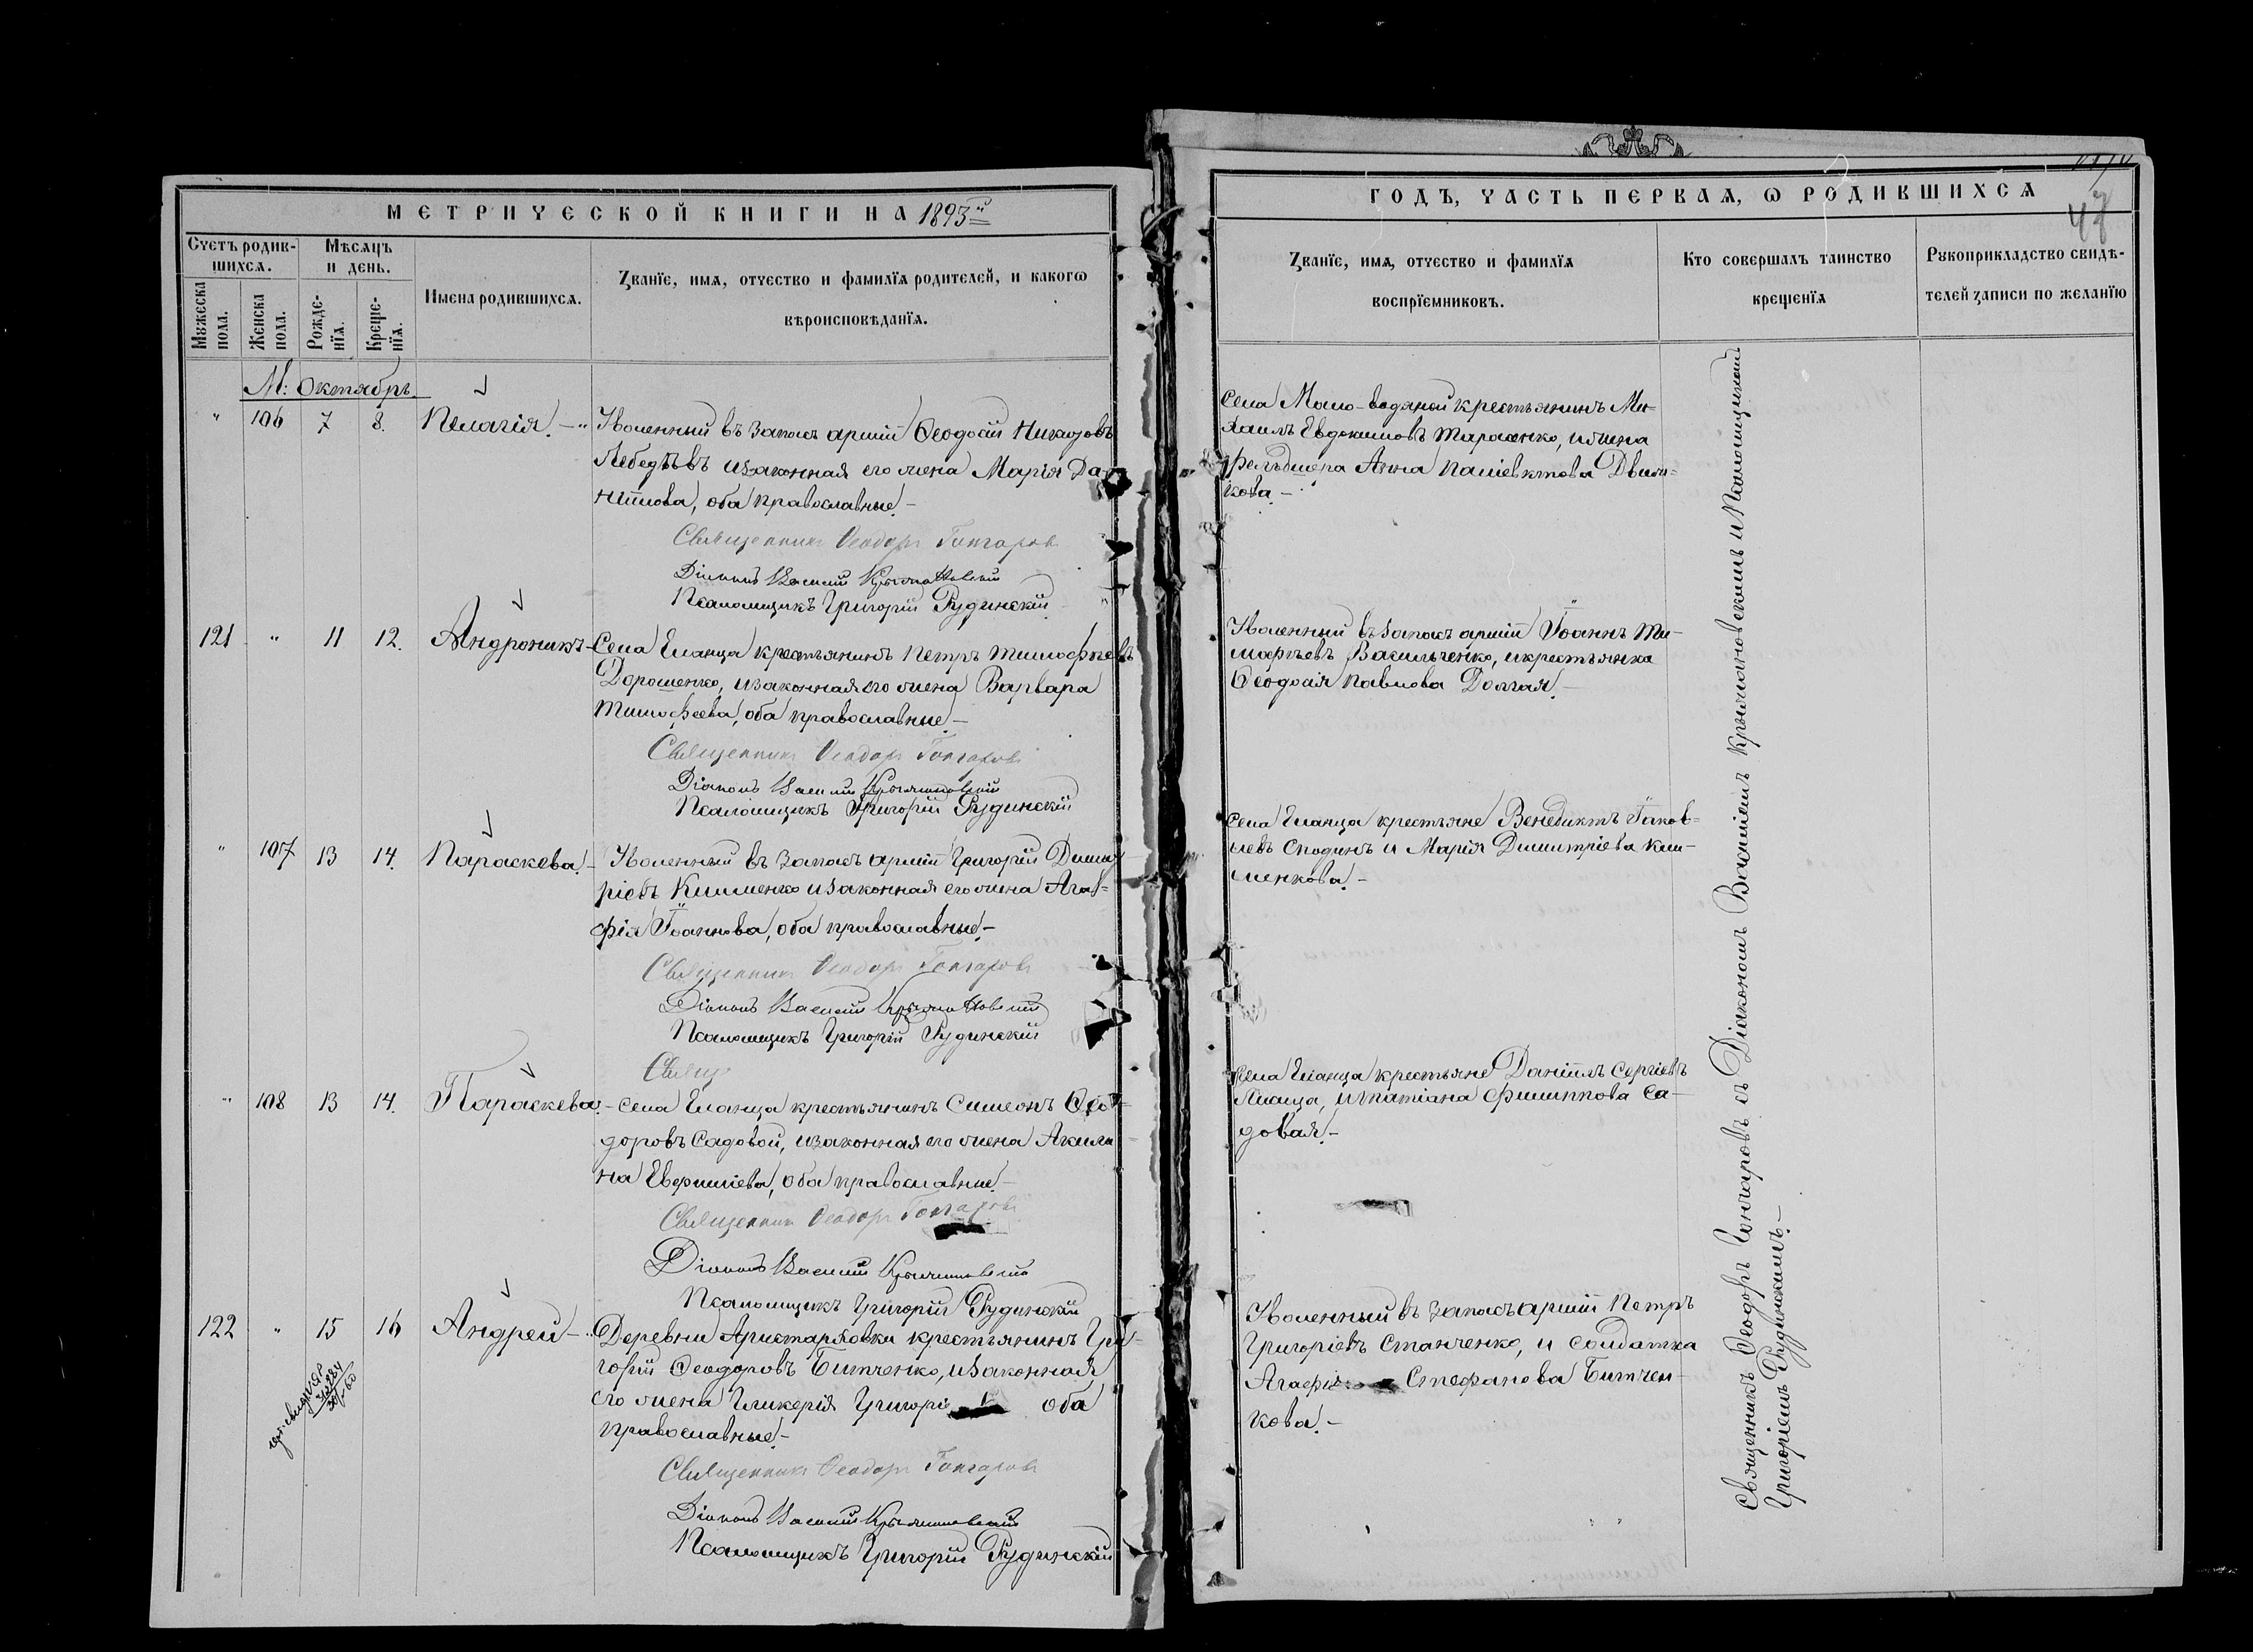 МЕТРИЧЕСКОЙ КНИГИ НА 1893й
Счетъ родив-
шихся.
Мѣсяцъ
и день.
Мужеска
пола.
Женска
пола.
Рожде-
нїя.
Креще-
нїя.
Имена родившихся.
Званїе, имя, отчество и фамилїя родителей, и какогѡ
вѣроисповѣданїя.
М: Октябрь.
" 106 7 8. Пелагія. — Уволенный въ запасъ арміи Ѳеодосій
Лебедѣвъ и законная его жена Марія Да-
ніилова, оба православные. —
Священникъ Ѳеодоръ Гончаровъ
Діаконъ Василій Крыжановскій
Псаломщикъ Григорій Рудинскій
121 " 11 12. Андроникъ — Села Еланца крестьянинъ Петръ Тимофѣевъ
Дорошенко, и законная его жена Варвара
Тимофеева, оба православные —
Священникъ Ѳеодоръ Гончаровъ
Діаконъ Василій Крыжановскій
Псаломщикъ Григорій Рудинскій
" 107 13 14. Параскева. — Уволенный въ запасъ арміи Григорій Димит
ріевъ Клименко и законная его жена Ага-
фія Іоаннова, оба православные. —
Священникъ Ѳеодоръ Гончаровъ
Діаконъ Василій Крыжановскій
Псаломщикъ Григорій Рудинскій
Свящ
" 108 13 14. Параскева. — села Еланца крестьянинъ Симеонъ Ѳео-
доровъ Садовой, и законная его жена Акили
на Евфиміева, оба православные. —
Священникъ Ѳеодоръ Гончаровъ
Діаконъ Василій Крыжановскій
Псаломщикъ Григорій Рудинскій
122 " 15 16 Андрей — Деревни Аристарховки крестьянинъ Гри-
горій Ѳеодоровъ Битченко, и законная
его жена Гликерія Григорі оба
православные. —
Священникъ Ѳеодоръ Гончаровъ
Діаконъ Василій Крыжановскій
Псаломщикъ Григорій Рудинскій
ГОДЪ, ЧАСТЬ ПЕРВАЯ, Ѡ РОДИВШИХСЯ
47
Званїе, имя, отчество и фамилїя
воспрїемниковъ.
Кто совершалъ таинство
крещенїя
Рꙋкоприкладство свидѣ-
телей записи по желанїю
Села Мало-водяной крестьянинъ Ми-
хаилъ Евдокимовъ Тарасенко, и жена
фельдшера Анна
кова. —
Уволенный въ запасъ арміи Іоаннъ Ти-
мофѣевъ Васильченко, и крестьянка
Ѳеодосія Павлова Долгая. —
Села Еланца крестьяне Венедиктъ Іаков-
левъ Сподинъ и Марія Димитріева Кли-
менкова. —
Села Еланца крестьяне Даніилъ Сергіевъ
Лисица, и Татіана Филиппова Са-
довая. —
Уволенный въ запасъ арміи Петръ
Григоріевъ Станченко, и солдатка
Агафія Стефанова Битчен-
кова. —
Священникъ Ѳеодоръ Гончаровъ съ Діакономъ Василіемъ Крыжановскимъ и Псаломщикомъ
Григоріемъ Рудинскимъ. —